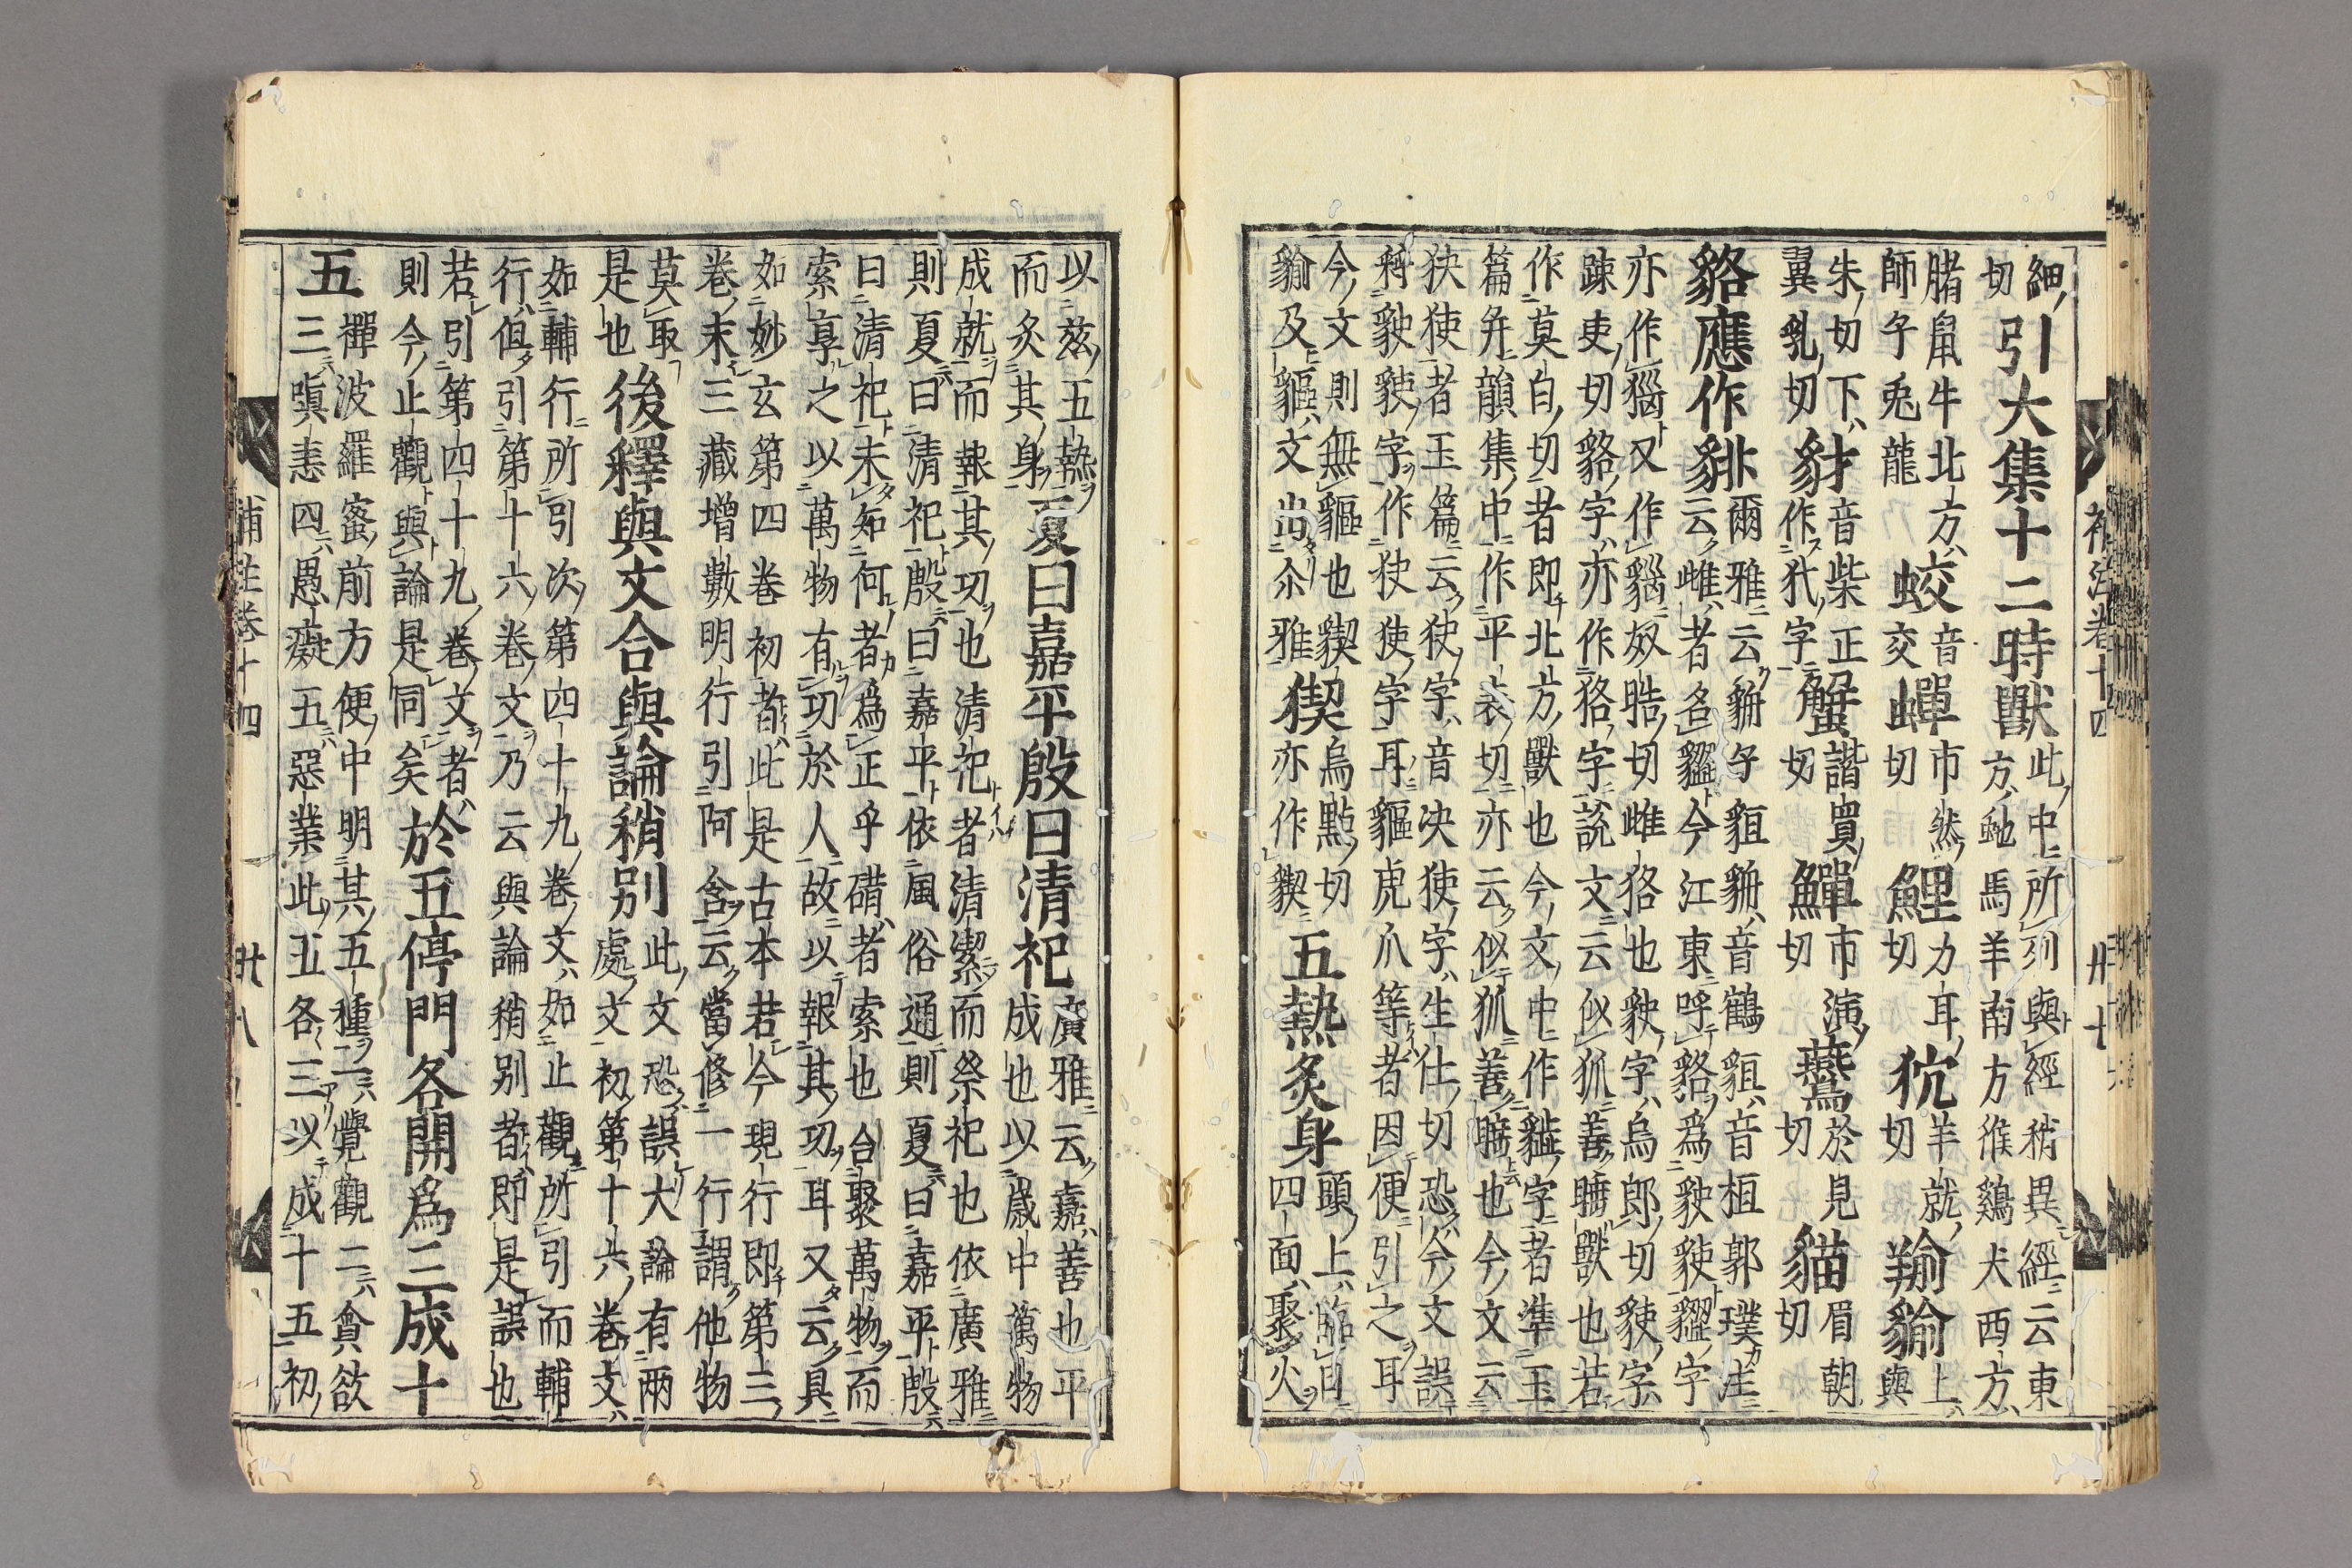 細引大集十二時獸此中所列與經稍異經云東
切方虵馬羊南方猴鷄犬西方
𦞦鼠牛北方蛟音鱓市然鯉力耳犺羊就羭貐上
師子兎龍交切切切與
朱切下豺音柴正蟹諧買鱓市演燕於見貓眉朝
翼乳切作犲字切切切切
貉應作貅爾雅云貈子貆貈音鶴貆音桓郭璞注
云雌者名今江東呼貉爲字
亦作猫又作奴晧切雌狢也字烏郎切字
踈吏切貉字亦作狢字說文云似狐善睡獸也若
作莫白切者即北方獸也今文中作字者準玉
篇并韻集中作平表切亦云似狐善曠也今文云
者玉篇云字音决字生仕切恐今文誤
字作字耳貙虎爪等者因便引之耳
今文則無貙也猰烏黠切五熱炙身頭上臨日
貐及貙文尚尒雅猰亦作四面聚火
以茲五熱夏曰嘉平殷曰清祀廣雅云嘉善也平
而炙其身成也以歲中萬物
成就而報其功也清祀者清潔而祭祀也依廣雅
則夏曰清祀殷曰嘉平依風俗通則夏曰嘉平殷
曰清祀未知何者爲正乎碏者索也合聚萬物而
索享之以萬物有功於人故以報其功耳又云具
如妙玄第四卷初者此是古本若今現行即第三
卷末三藏增數明行引阿含云當修一行謂他物
莫取後釋與文合與論稍别此文恐誤大論有兩
是也處文初第十六卷文
如輔行所引次第四十九卷文如止觀所引而輔
行但引第十六卷文乃云與論稍别者即是誤也
若引第四十九卷文者於五停門各開爲三成十
則今止觀與論是同矣
五禪波羅蜜前方便中明其五種一覺觀二貪欲
三嗔恚四愚癡五惡業此五各三以成十五初
補注卷十四
卅七
補注卷十四
卅八